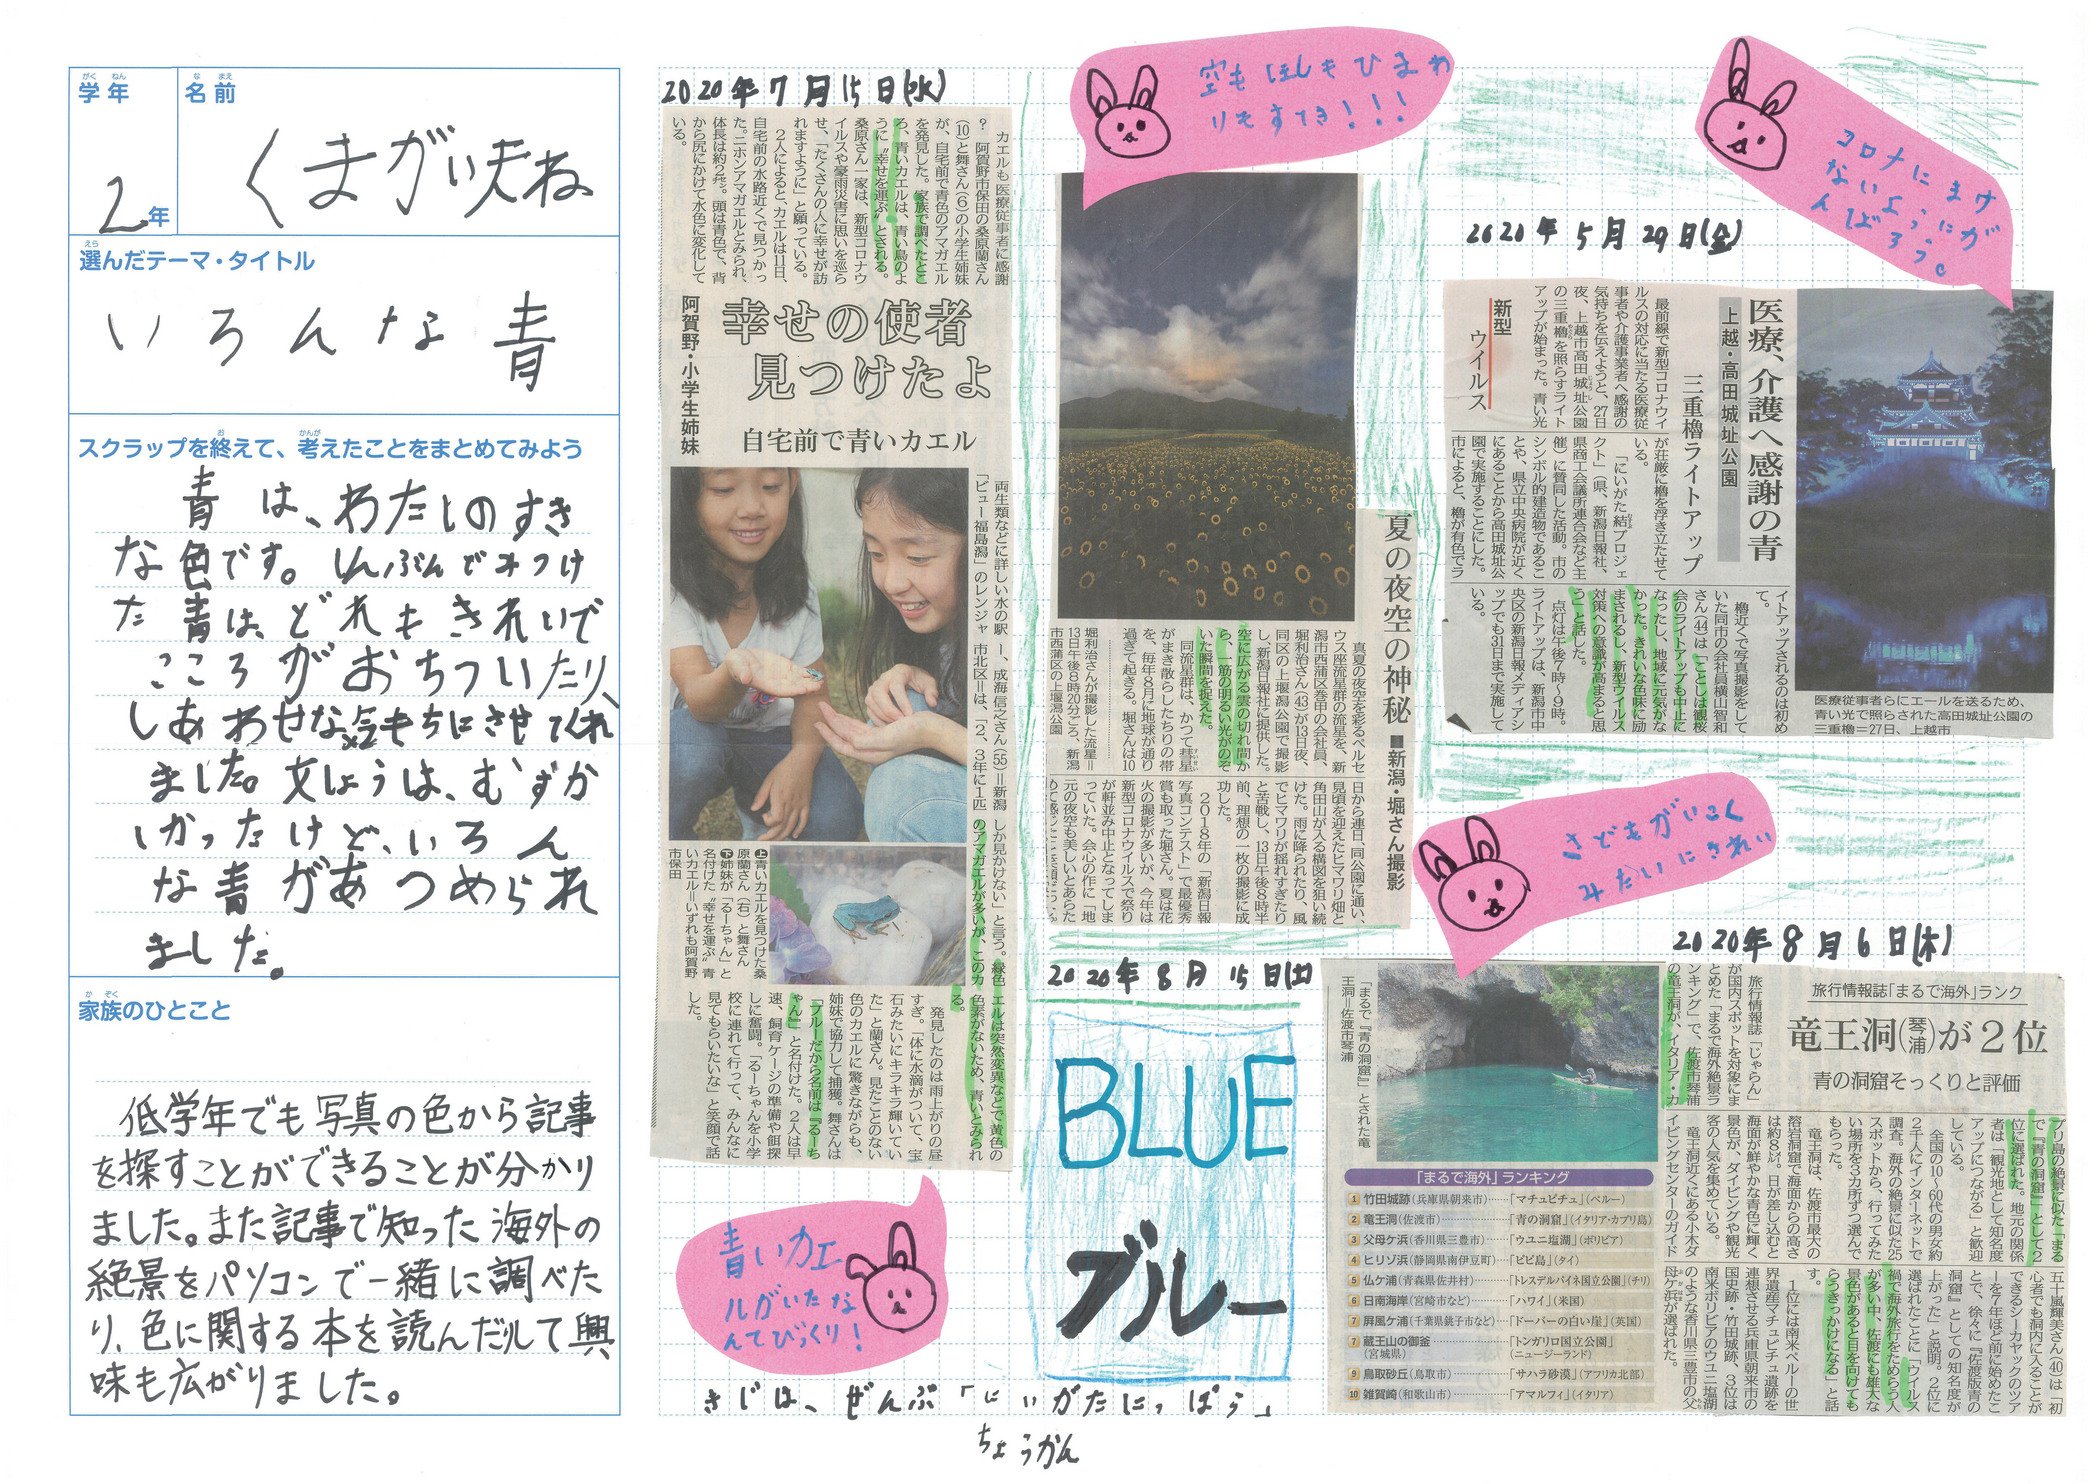 学年
がくねん
名前
なまえ
2年
くまがい
選んだテーマ・タイトル
えら
いろんな青
スクラップを終えて、考えたことをまとめてみよう
お
かんが
青は、わたしのすき
な色です。しんぶんでみつけ
た青は、どれもきれいで
こころがおちついたり、
しあわせな気もちにさせてくれ
ました。文しょうは、むずか
しかったけど、いろん
な青があつめられ
ました。
家族のひとこと
かぞく
低学年でも写真の色から記事
を探すことができることが分かり
ました。また記事で知った海外の
絶景をパソコンで一緒に調べた
り、色に関する本を読んだりして興
味も広がりました。
2020年7月15日(水)
カエルも医療従事者に感謝
?阿賀野市保田の桑原蘭さん
(10)と舞さん(6)の小学生姉妹
が、自宅前で青色のアマガエル
を発見した。家族で調べたとこ
ろ、青いカエルは、青い鳥のよ
うに“幸せを運ぶ”とされる。
桑原さん一家は、新型コロナウ
イルスや豪雨災害に思いを巡ら
せ、「たくさんの人に幸せが訪
れますように」と願っている。
2人によると、カエルは11日、
自宅前の水路近くで見つかっ
た。ニホンアマガエルとみられ、
体長は約2㌢。頭は青色で、背
から尻にかけて水色に変化して
いる。
幸せの使者
見つけたよ
阿賀野・小学生姉妹
自宅前で青いカエル
両生類などに詳しい水の駅
「ビュー福島潟」のレンジャ
ー、成海信之さん(55)=新潟
市北区=は、「2、3年に1匹
しか見かけない」と言う。緑色
のアマガエルが多いが、このカ
エルは突然変異などで黄色の
色素がないため、青いとみられ
る。
発見したのは雨上がりの昼
すぎ。「体に水滴がついて、宝
石みたいにキラキラ輝いてい
た」と蘭さん。見たことのない
色のカエルに驚きながらも、
姉妹で協力して捕獲。舞さんは
「ブルーだから名前は『るーち
ゃん』」と名付けた。2人は早
速、飼育ケージの準備や餌探
しに奮闘。「るーちゃんを小学
校に連れて行って、みんなに
見てもらいたいな」と笑顔で話
した。
上青いカエルを見つけた桑
原蘭さん(右)と舞さん
下姉妹が「るーちゃん」と
名付けた“幸せを運ぶ”青
いカエル=いずれも阿賀野
市保田
青いカエ
ルがいたな
んてびっくり!
空もほしもひまわ
りもすてき!!!
夏の夜空の神秘
■新潟・堀さん撮影
真夏の夜空を彩るペルセ
ウス座流星群の流星を、新
潟市西蒲区巻甲の会社員、
堀利治さん(43)が13日夜、
同区の上堰潟公園で撮影
し、新潟日報社に提供した。
空に広がる雲の切れ間か
ら、一筋の明るい光がのぞ
いた瞬間を捉えた。
同流星群は、かつて彗星
すいせい
がまき散らしたちりの帯
を、毎年8月に地球が通り
過ぎて起きる。堀さんは10
日から連日、同公園に通い、
見頃を迎えたヒマワリ畑と
角田山が入る構図を狙い続
けた。雨に降られたり、風
でヒマワリが揺れすぎたり
と苦戦し、13日午後8時半
前、理想の一枚の撮影に成
功した。
2018年の「新潟日報
写真コンテスト」で最優秀
賞も取った堀さん。夏は花
火の撮影が多いが、今年は
新型コロナウイルスで祭り
が軒並み中止となってしま
っていた。会心の作に「地
元の夜空も美しいとあらた
堀利治さんが撮影した流星=
13日午後8時20分ごろ、新潟
市西蒲区の上堰潟公園
2020年8月15日(土)
BLUE
ブルー
コロナにまけ
ないようにが
んばろう。
2020年5月29日(金)
医療、介護へ感謝の青
上越・高田城址公園
三重櫓ライトアップ
新型
ウイルス
最前線で新型コロナウイ
ルスの対応に当たる医療従
事者や介護事業者へ感謝の
気持ちを伝えようと、27日
夜、上越市高田城址公園
の三重櫓を照らすライト
アップが始まった。青い光
が荘厳に櫓を浮き立たせて
いる。
「にいがた結プロジェ
クト」(県、新潟日報社、
県商工会議所連合会など主
催)に賛同した活動。市の
シンボル的建造物であるこ
とや、県立中央病院が近く
にあることから高田城址公
園で実施することにした。
市によると、櫓が有色でラ
イトアップされるのは初め
て。
櫓近くで写真撮影をして
いた同市の会社員横山智和
さん(44)は「ことしは観桜
会のライトアップも中止に
なったし、地域に元気がな
かった。きれいな色味に励
まされるし、新型ウイルス
対策への意識が高まると思
う」と話した。
点灯は午後7時〜9時。
ライトアップは、新潟市中
央区の新潟日報メディアシ
ップでも31日まで実施して
いる。
医療従事者らにエールを送るため、
青い光で照らされた高田城址公園の
三重櫓=27日、上越市
さどもがいこく
みたいにきれい
2020年8月6日(木)
旅行情報誌「まるで海外」ランク
竜王洞(琴浦)が2位
青の洞窟そっくりと評価
「まるで『青の洞窟』」とされた竜
王洞=佐渡市琴浦
旅行情報誌「じゃらん」
が国内スポットを対象にま
とめた「まるで海外絶景ラ
ンキング」で、佐渡市琴浦
の竜王洞が、イタリア・カ
プリ島の絶景に似た「まる
で『青の洞窟』」として2
位に選ばれた。地元の関係
者は「観光地として知名度
アップにつながる」と歓迎
している。
全国の10〜60代の男女約
2千人にインターネットで
調査。海外の絶景に似た25
スポットから、行ってみた
い場所を3カ所ずつ選んで
もらった。
竜王洞は、佐渡市最大の
溶岩洞窟で海面からの高さ
は約8㍍。日が差し込むと
海面が鮮やかな青色に輝く
景色が、ダイビングや観光
客の人気を集めている。
竜王洞近くにある小木ダ
イビングセンターのガイド
五十嵐輝美さん(40)は「初
心者でも洞内に入ることが
できるシーカヤックのツア
ーを7年ほど前に始めたこ
とで、徐々に『佐渡版青の
洞窟』としての知名度が
上がった」と説明。2位に
選ばれたことに「ウイルス
禍で海外旅行をためらう人
が多い中、佐渡にも雄大な
景色があると目を向けても
らうきっかけになる」と話
す。
1位には南米ペルーの世
界遺産マチュピチュ遺跡を
連想させる兵庫県朝来市の
国史跡・竹田城跡、3位は
南米ボリビアのウユニ塩湖
のような香川県三豊市の父
母ケ浜が選ばれた。
「まるで海外」ランキング
1 竹田城跡(兵庫県朝来市)……「マチュピチュ」(ペルー)
2 竜王洞(佐渡市)……「青の洞窟」(イタリア・カプリ島)
3 父母ケ浜(香川県三豊市)……「ウユニ塩湖」(ボリビア)
4 ヒリゾ浜(静岡県南伊豆町)……「ピピ島」(タイ)
5 仏ケ浦(青森県佐井村)……「トレスデルパイネ国立公園」(チリ)
6 日南海岸(宮崎市など)……「ハワイ」(米国)
7 屏風ケ浦(千葉県銚子市など)……「ドーバーの白い崖」(英国)
7 蔵王山の御釜……「トンガリロ国立公園」
(宮城県) (ニュージーランド)
9 鳥取砂丘(鳥取市)……「サハラ砂漠」(アフリカ北部)
10 雑賀崎(和歌山市)……「アマルフィ」(イタリア)
きじは、ぜんぶ「にいがたにっぽう」
ちょうかん